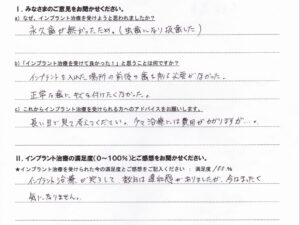 I. みなさまのご意見をお聞かせください。
a) なぜ、インプラント治療を受けようと思われましたか?
永久歯が無かったため。(虫歯になり抜歯した)
b) 「インプラント治療を受けて良かった!」と思うことは何ですか?
インプラントを入れた場所の前後の歯を削る必要がなかった。
正常な歯に キズを付けたくなかった。
c) これからインプラント治療を受けられる方へのアドバイスをお願いします。
長い目で見て考えてください。タダ治療には費用がかかりますが…。
II. インプラント治療の満足度(0~100%)とご感想をお聞かせください。
★インプラント治療を受けられた今の満足度とご感想をご記入ください : 満足度/ %
インプラント治療が完了して 数日は違和感がありましたが、今はまったく
気になりません。